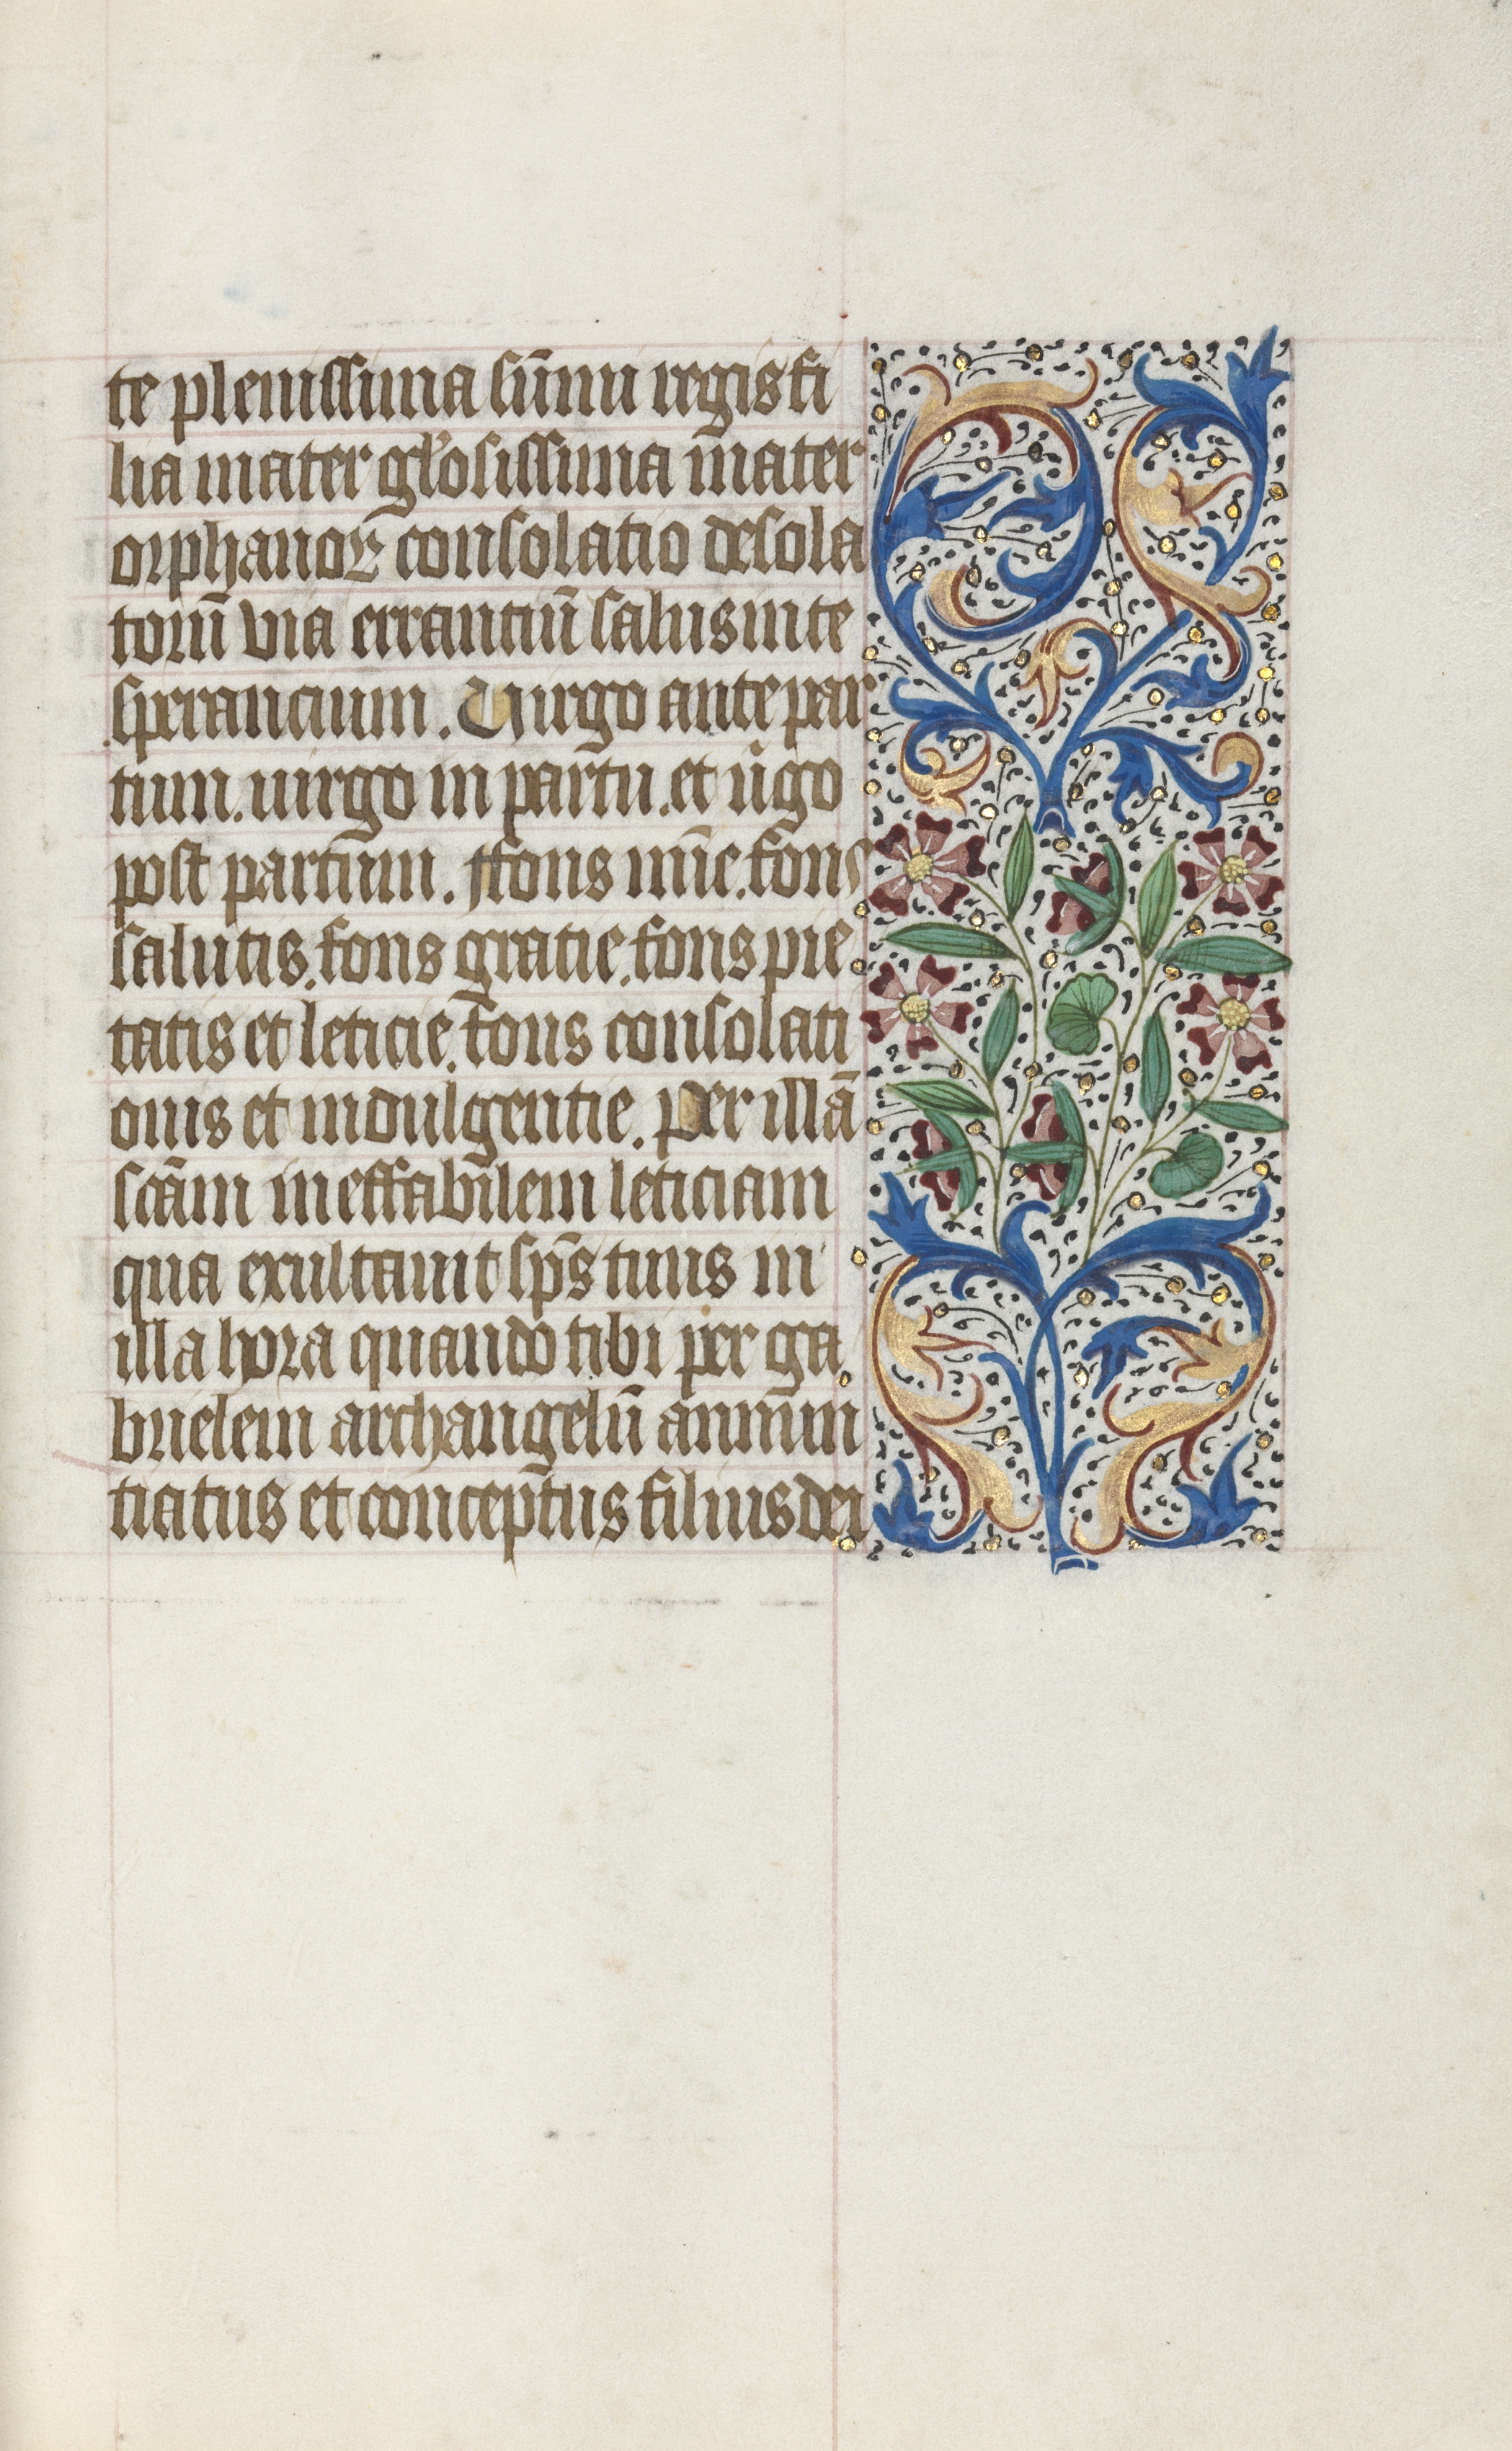 te plenissima sūmi regis fi
lia mater gl'osissima mater
orphanoꝝ consolatio desola
torū via errantiū salus in te
sperancium. Uirgo ante par
tum. uirgo in partu. et ůgo
post partum. ffons mīe. fons
salutis. fons gratie. fons pie
tatis et leticie. fons consolati
onis et indulgentie. Per illā
scām ineffabilem leticiam
qua exultauit sp̄s tuus in
illa hora quando tibi per ga
brielem archangelū annun
tiatus et conceptus filius dei